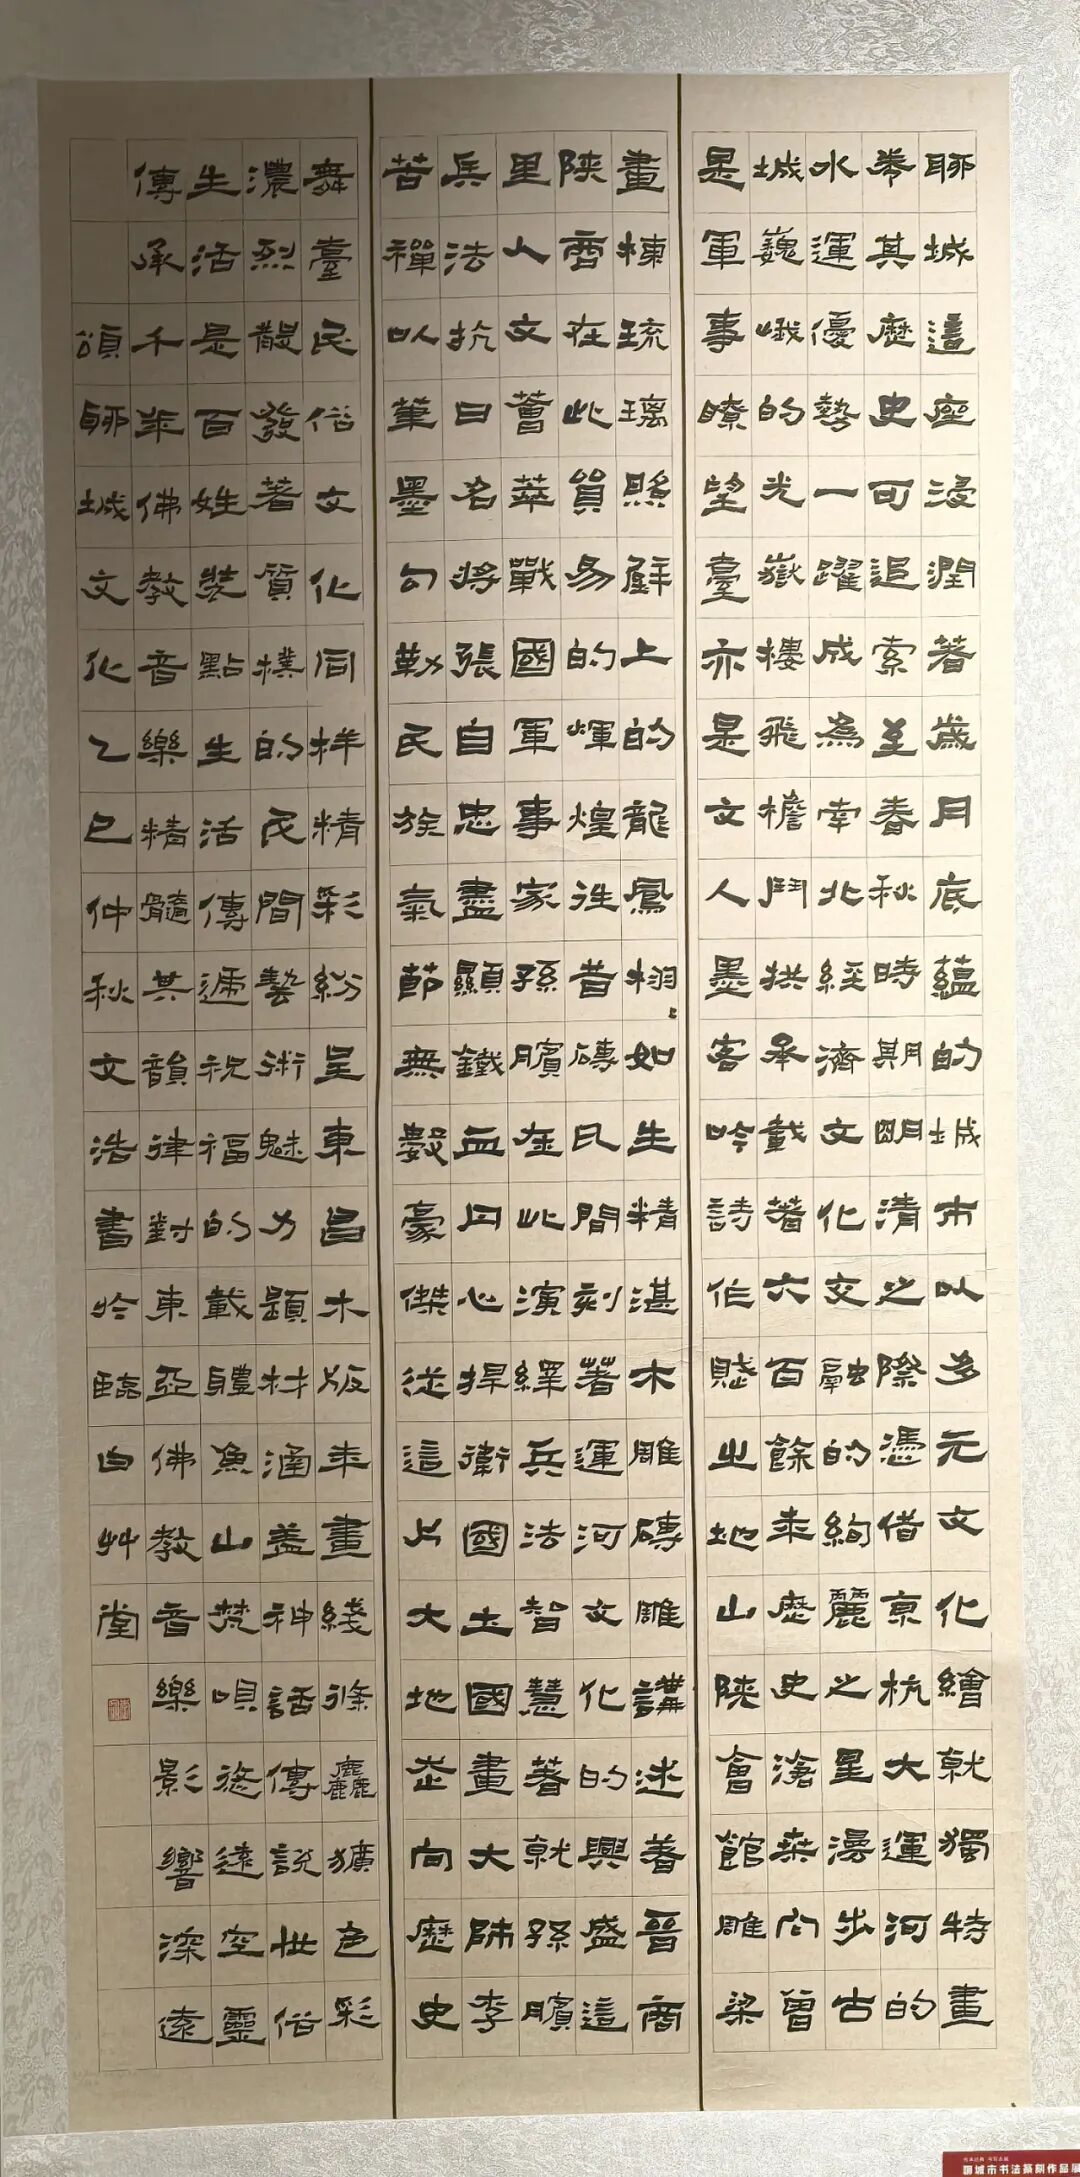 聊城這座浸潤著歲月底蘊的城市以多元文化繪就獨特畫
卷其歷史可追索至春秋時期明清之際憑借京杭大運河的
水運優勢一躍成為南北經濟文化交融的絢麗之星漫步古
城巍峨的光嶽樓飛檐鬥拱承載著六百餘年歷史滄桑它曾
是軍事瞭望臺亦是文人墨客吟詩作賦之地山陝會館雕梁
畫棟琉璃上的龍鳳栩〻如生精湛木雕磚雕講述著晉商
陝商在此貿易的輝煌往昔磚瓦間刻著運河文化的興盛這
里人文薈萃戰國軍事家孫臏在此演繹兵法智慧著就孫臏
兵法抗日名將張自忠盡顯鐵血丹心捍衛國土國畫大師李
苦禪以筆墨勾勒民族氣節無數豪傑從這片大地走向歷史
舞臺民俗文化同樣精彩紛呈東昌木版年畫綫條麤獷色彩
濃烈散發著質樸的民間藝術魅力題材涵蓋神話傳說世俗
生活是百姓裝點生活傳遞祝福的載體魚山梵唄悠遠空靈
傳承千年佛教音樂精髓其韻律對東亞佛教音樂影響深遠
頌聊城文化乙巳仲秋文浩書於臨白艸堂
聊城市书法篆刻作品展